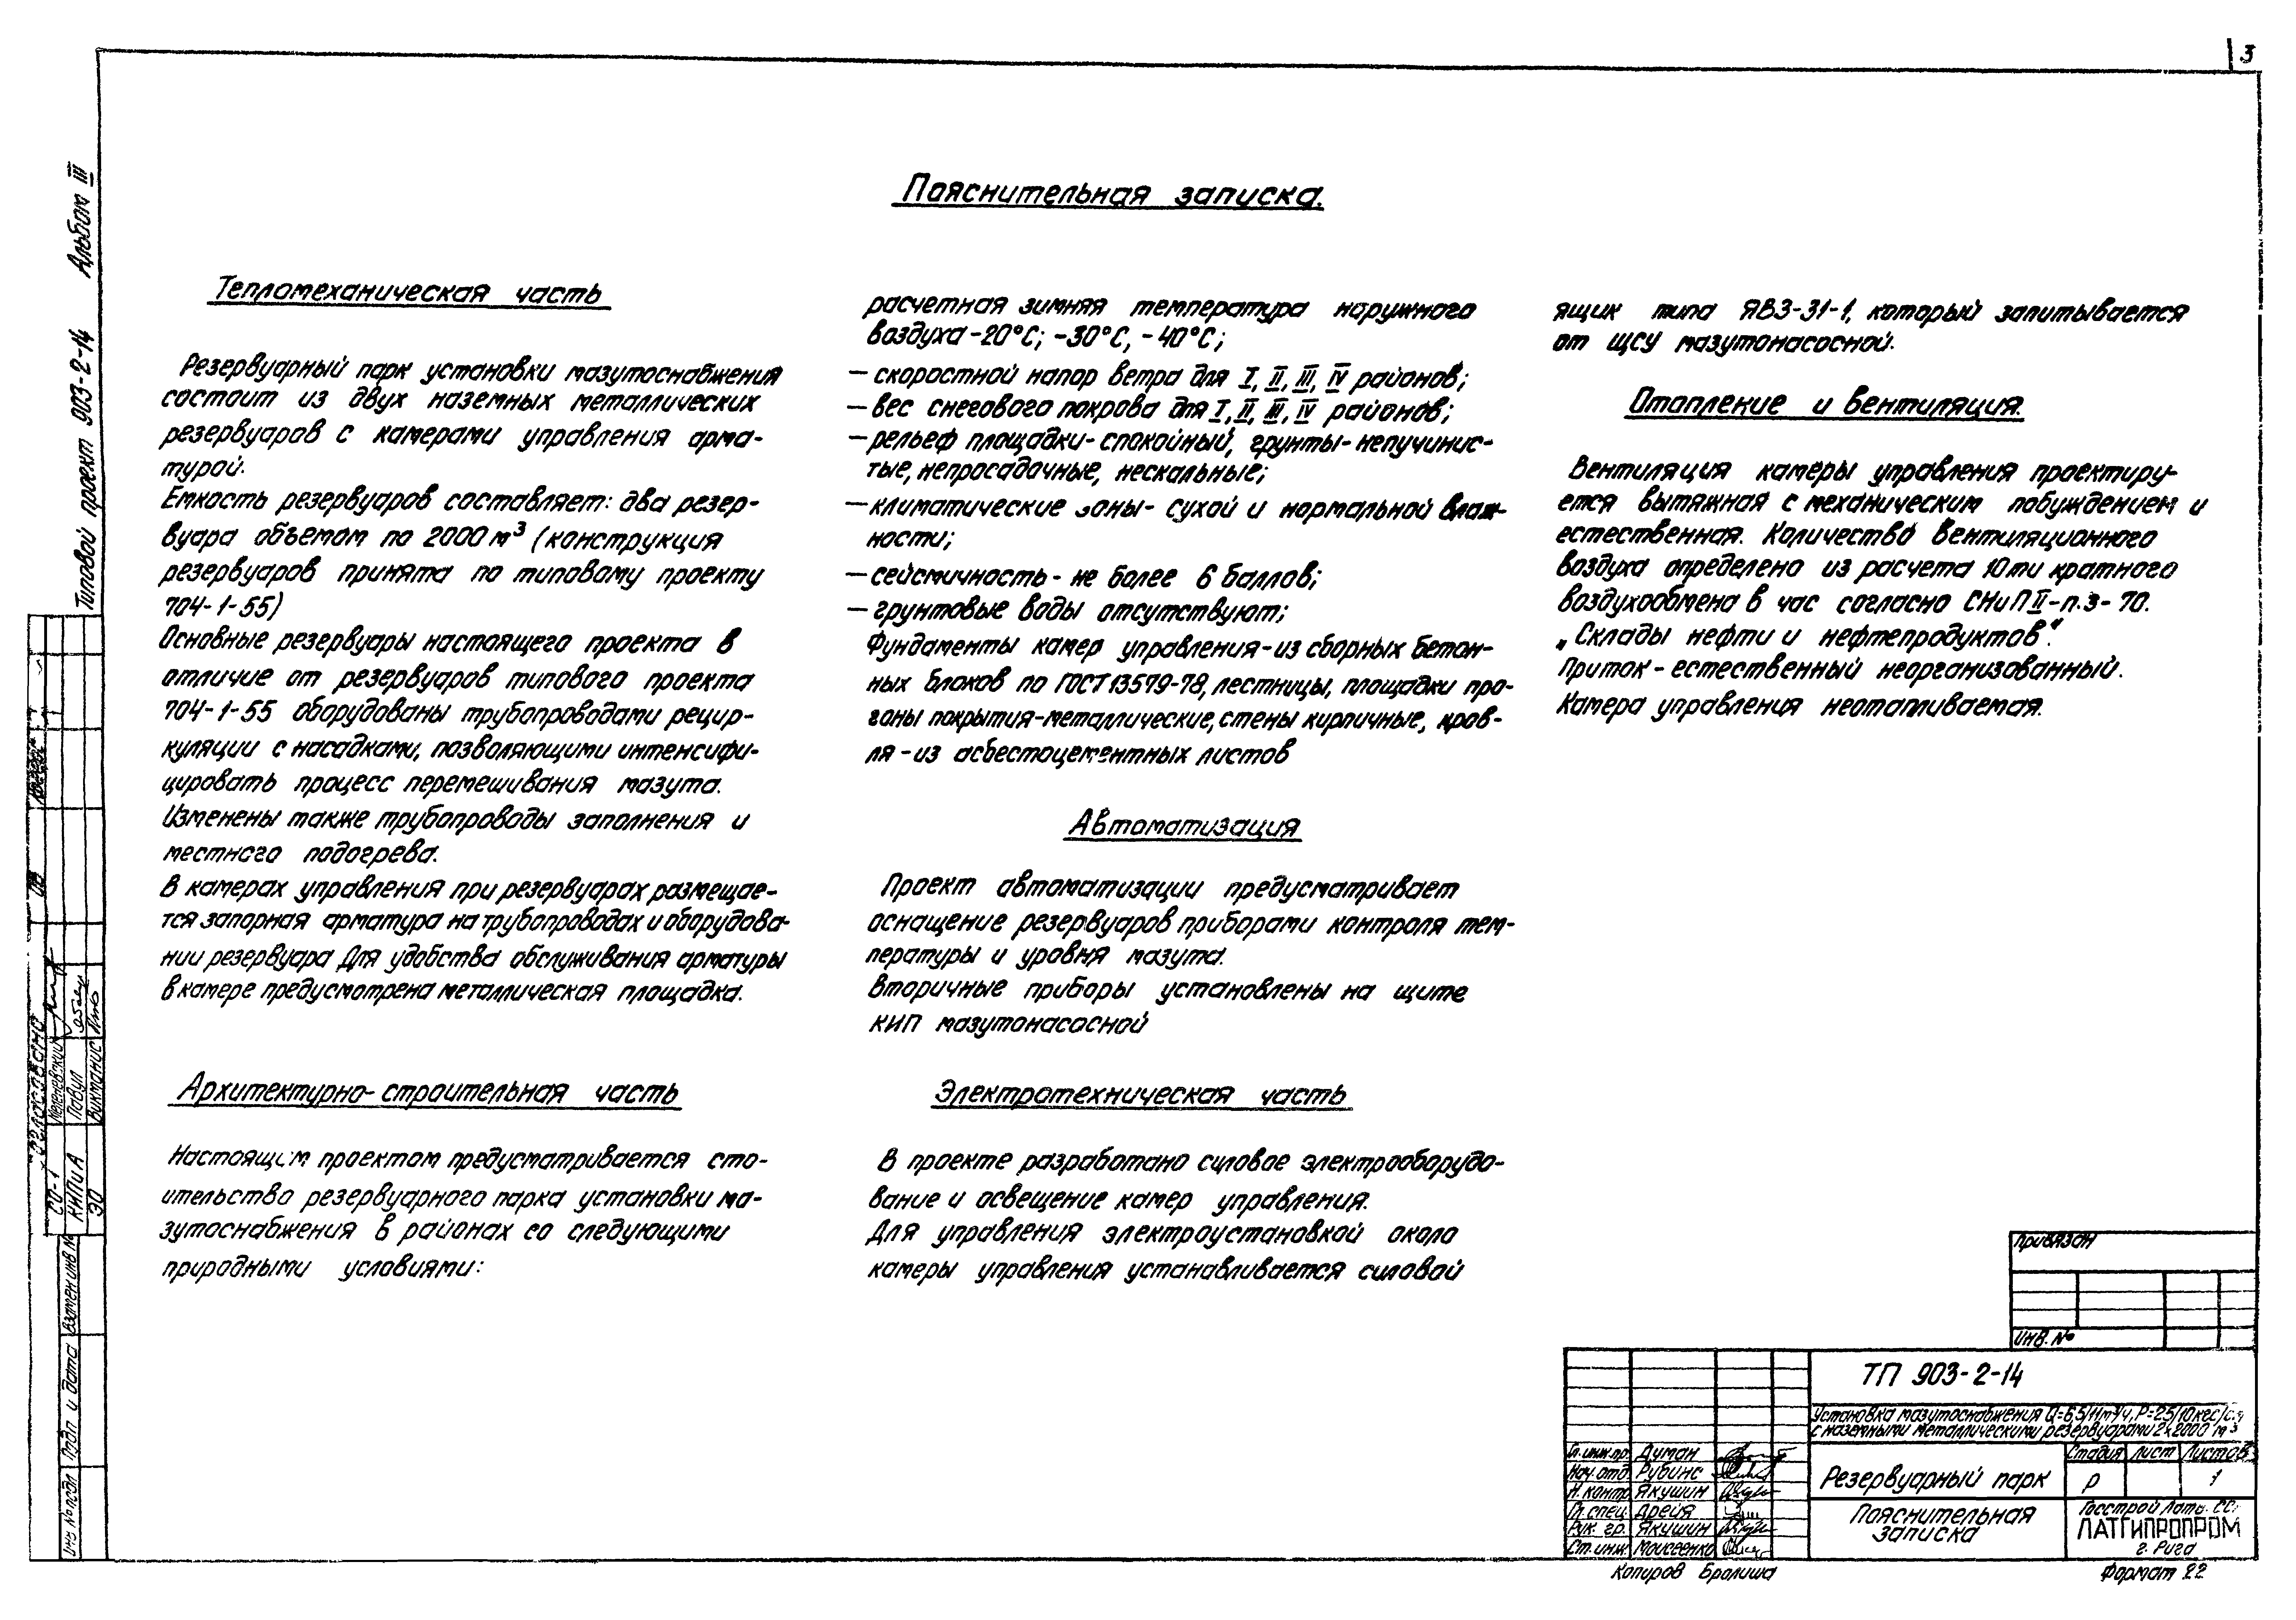 3
Типовой проект 903-2-14 Альбом III
Пояснительная записка.
Тепломеханическая часть
Резервуарный парк установки мазутоснабжения
состоит из двух наземных металлических
резервуаров с камерами управления арма-
турой.
Емкость резервуаров составляет: два резер-
вуара объемом по 2000 м³ (конструкция
резервуаров принята по типовому проекту
704-1-55)
Основные резервуары настоящего проекта в
отличие от резервуаров типового проекта
704-1-55 оборудованы трубопроводами рецир-
куляции с насадками, позволяющими интенсифи-
цировать процесс перемешивания мазута.
Изменены также трубопроводы заполнения и
местного подогрева.
В камерах управления при резервуарах размещае-
тся запорная арматура на трубопроводах и оборудова-
нии резервуара Для удобства обслуживания арматуры
в камере предусмотрена металлическая площадка.
Архитектурно-строительная часть
Настоящим проектом предусматривается сто-
ительство резервуарного парка установки ма-
зутоснабжения в районах со следующими
природными условиями:
расчетная зимняя температура наружного
воздуха -20°С; -30°С, -40°С;
— скоростной напор ветра для I, II, III, IV районов;
— вес снегового покрова для I, II, III, IV районов;
— рельеф площадки- спокойный, грунты- непучинис-
тые, непросадочные, нескальные;
— климатические зоны- сухой и нормальной влаж-
ности;
— сейсмичность- не более 6 баллов;
— грунтовые воды отсутствуют;
Фундаменты камер управления-из сборных бетон-
ных блоков по ГОСТ 13579-78, лестницы, площадки про-
гоны покрытия-металлические, стены кирпичные, кров-
ля -из асбестоцементных листов
Автоматизация
Проект автоматизации предусматривает
оснащение резервуаров приборами контроля тем-
пературы и уровня мазута.
Вторичные приборы установлены на щите
КИП мазутонасосной
Электротехническая часть
В проекте разработано силовое электрооборудо-
вание и освещение камер управления.
Для управления электроустановкой около
камеры управления устанавливается силовой
ящик типа ЯВЗ-31-1, который запитывается
от ЩСУ мазутонасосной.
Отопление и вентиляция.
Вентиляция камеры управления проектиру-
ется вытяжная с механическим побуждением и
естественная. Количество вентиляционного
воздуха определено из расчета 10ти кратного
воздухообмена в час согласно СНиП II-п.3-70.
„Склады нефти и нефтепродуктов".
Приток - естественный неорганизованный.
Камера управления неотапливаемая.
Согласовано
СО-1
КИПиА Павул
ЭО Виктанис
Взамен инв №
Подп и дата
Инв № подл
Привязан
Инв. №
ТП 903-2-14
Установка мазутоснабжения Q=6,5/11м³/ч, Р=25/10кгс/см
с наземными металлическими резервуарами 2х2000 м³
Гл. инж. пр. Думан
Нач. отд. Рубинс
Н. контр. Якушин
Гл. спец. Дрейя
Рук. гр. Якушин
Ст. инж. Моисеенко
Резервуарный парк
Стадия Лист Листов
Р 1
Пояснительная
записка
Госстрой Латв. ССР
ЛАТГИПРОПРОМ
г. Рига
Копиров Бролиша
Формат 22